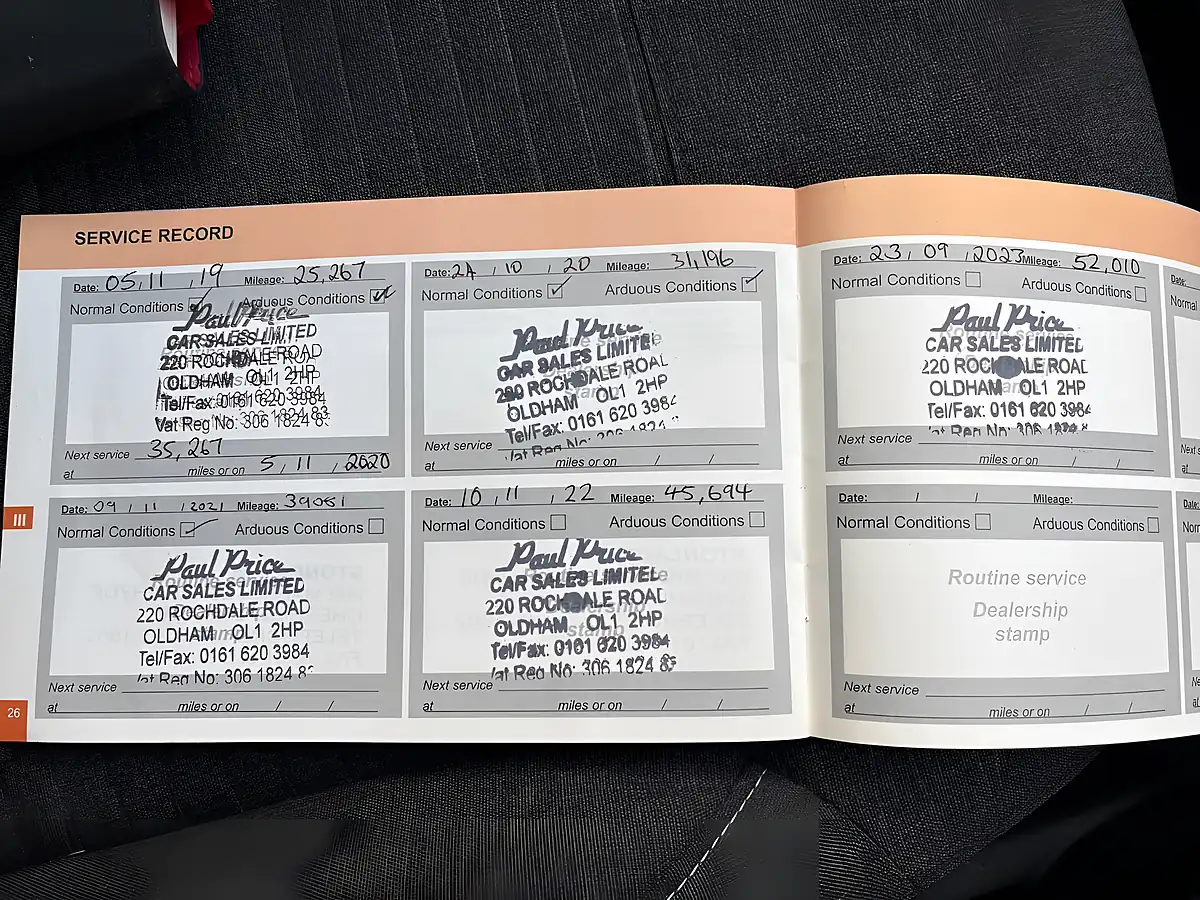 SERVICE RECORD
Date: 05, 11 , 19 Mileage: 25,267
Normal Conditions Arduous Conditions
Paul Price
CAR SALES LIMITED
220 ROCHDALE ROAD
OLDHAM OL1 2HP
Tel/Fax: 0161 620 3984
Vat Reg No: 306 1824 83
Next service 35,267
at miles or on 5 , 11 , 2020
Date: 24 , 10 , 20 Mileage: 31,196
Normal Conditions Arduous Conditions
Paul Price
CAR SALES LIMITED
220 ROCHDALE ROAD
OLDHAM OL1 2HP
Tel/Fax: 0161 620 3984
Vat Reg No: 306 1824
Next service
at miles or on / /
Date: 09 , 11 , 2021 Mileage: 39051
Normal Conditions Arduous Conditions
Paul Price
CAR SALES LIMITED
220 ROCHDALE ROAD
OLDHAM OL1 2HP
Tel/Fax: 0161 620 3984
Vat Reg No: 306 1824 8
Next service
at miles or on / /
Date: 10 , 11 , 22 Mileage: 45,694
Normal Conditions Arduous Conditions
Paul Price
CAR SALES LIMITED
220 ROCHDALE ROAD
OLDHAM OL1 2HP
Tel/Fax: 0161 620 3984
Vat Reg No: 306 1824 83
Next service
at miles or on / /
III
26
Date: 23 , 09 , 2023 Mileage: 52,010
Normal Conditions Arduous Conditions
Paul Price
CAR SALES LIMITED
220 ROCHDALE ROAD
OLDHAM OL1 2HP
Tel/Fax: 0161 620 3984
Vat Reg No: 306 1824
Next service
at miles or on / /
Date: / / Mileage:
Normal Conditions Arduous Conditions
Routine service
Dealership
stamp
Next service
at miles or on / /
Date:
Normal